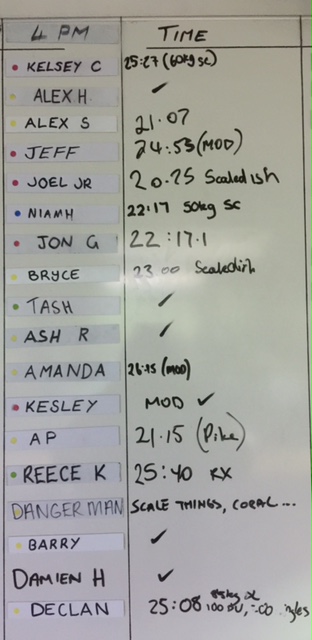 4 PM TIME
KELSEY C 25:27 (60kg SC)
ALEX H ✓
ALEX S 21.07
JEFF 24:53 (MOD)
JOEL JR 20.25 Scaledish
NIAMH 22:17 50kg SC
JON G 22:17.1
BRYCE 23 00 Scaledish
TASH ✓
ASH R ✓
AMANDA 26:15 (MOD)
KESLEY MOD ✓
AP 21.15 (Pike)
REECE K 25:40 RX
DANGERMAN SCALE THINGS, CORAL ...
BARRY ✓
DAMIEN H ✓
DECLAN 25:08